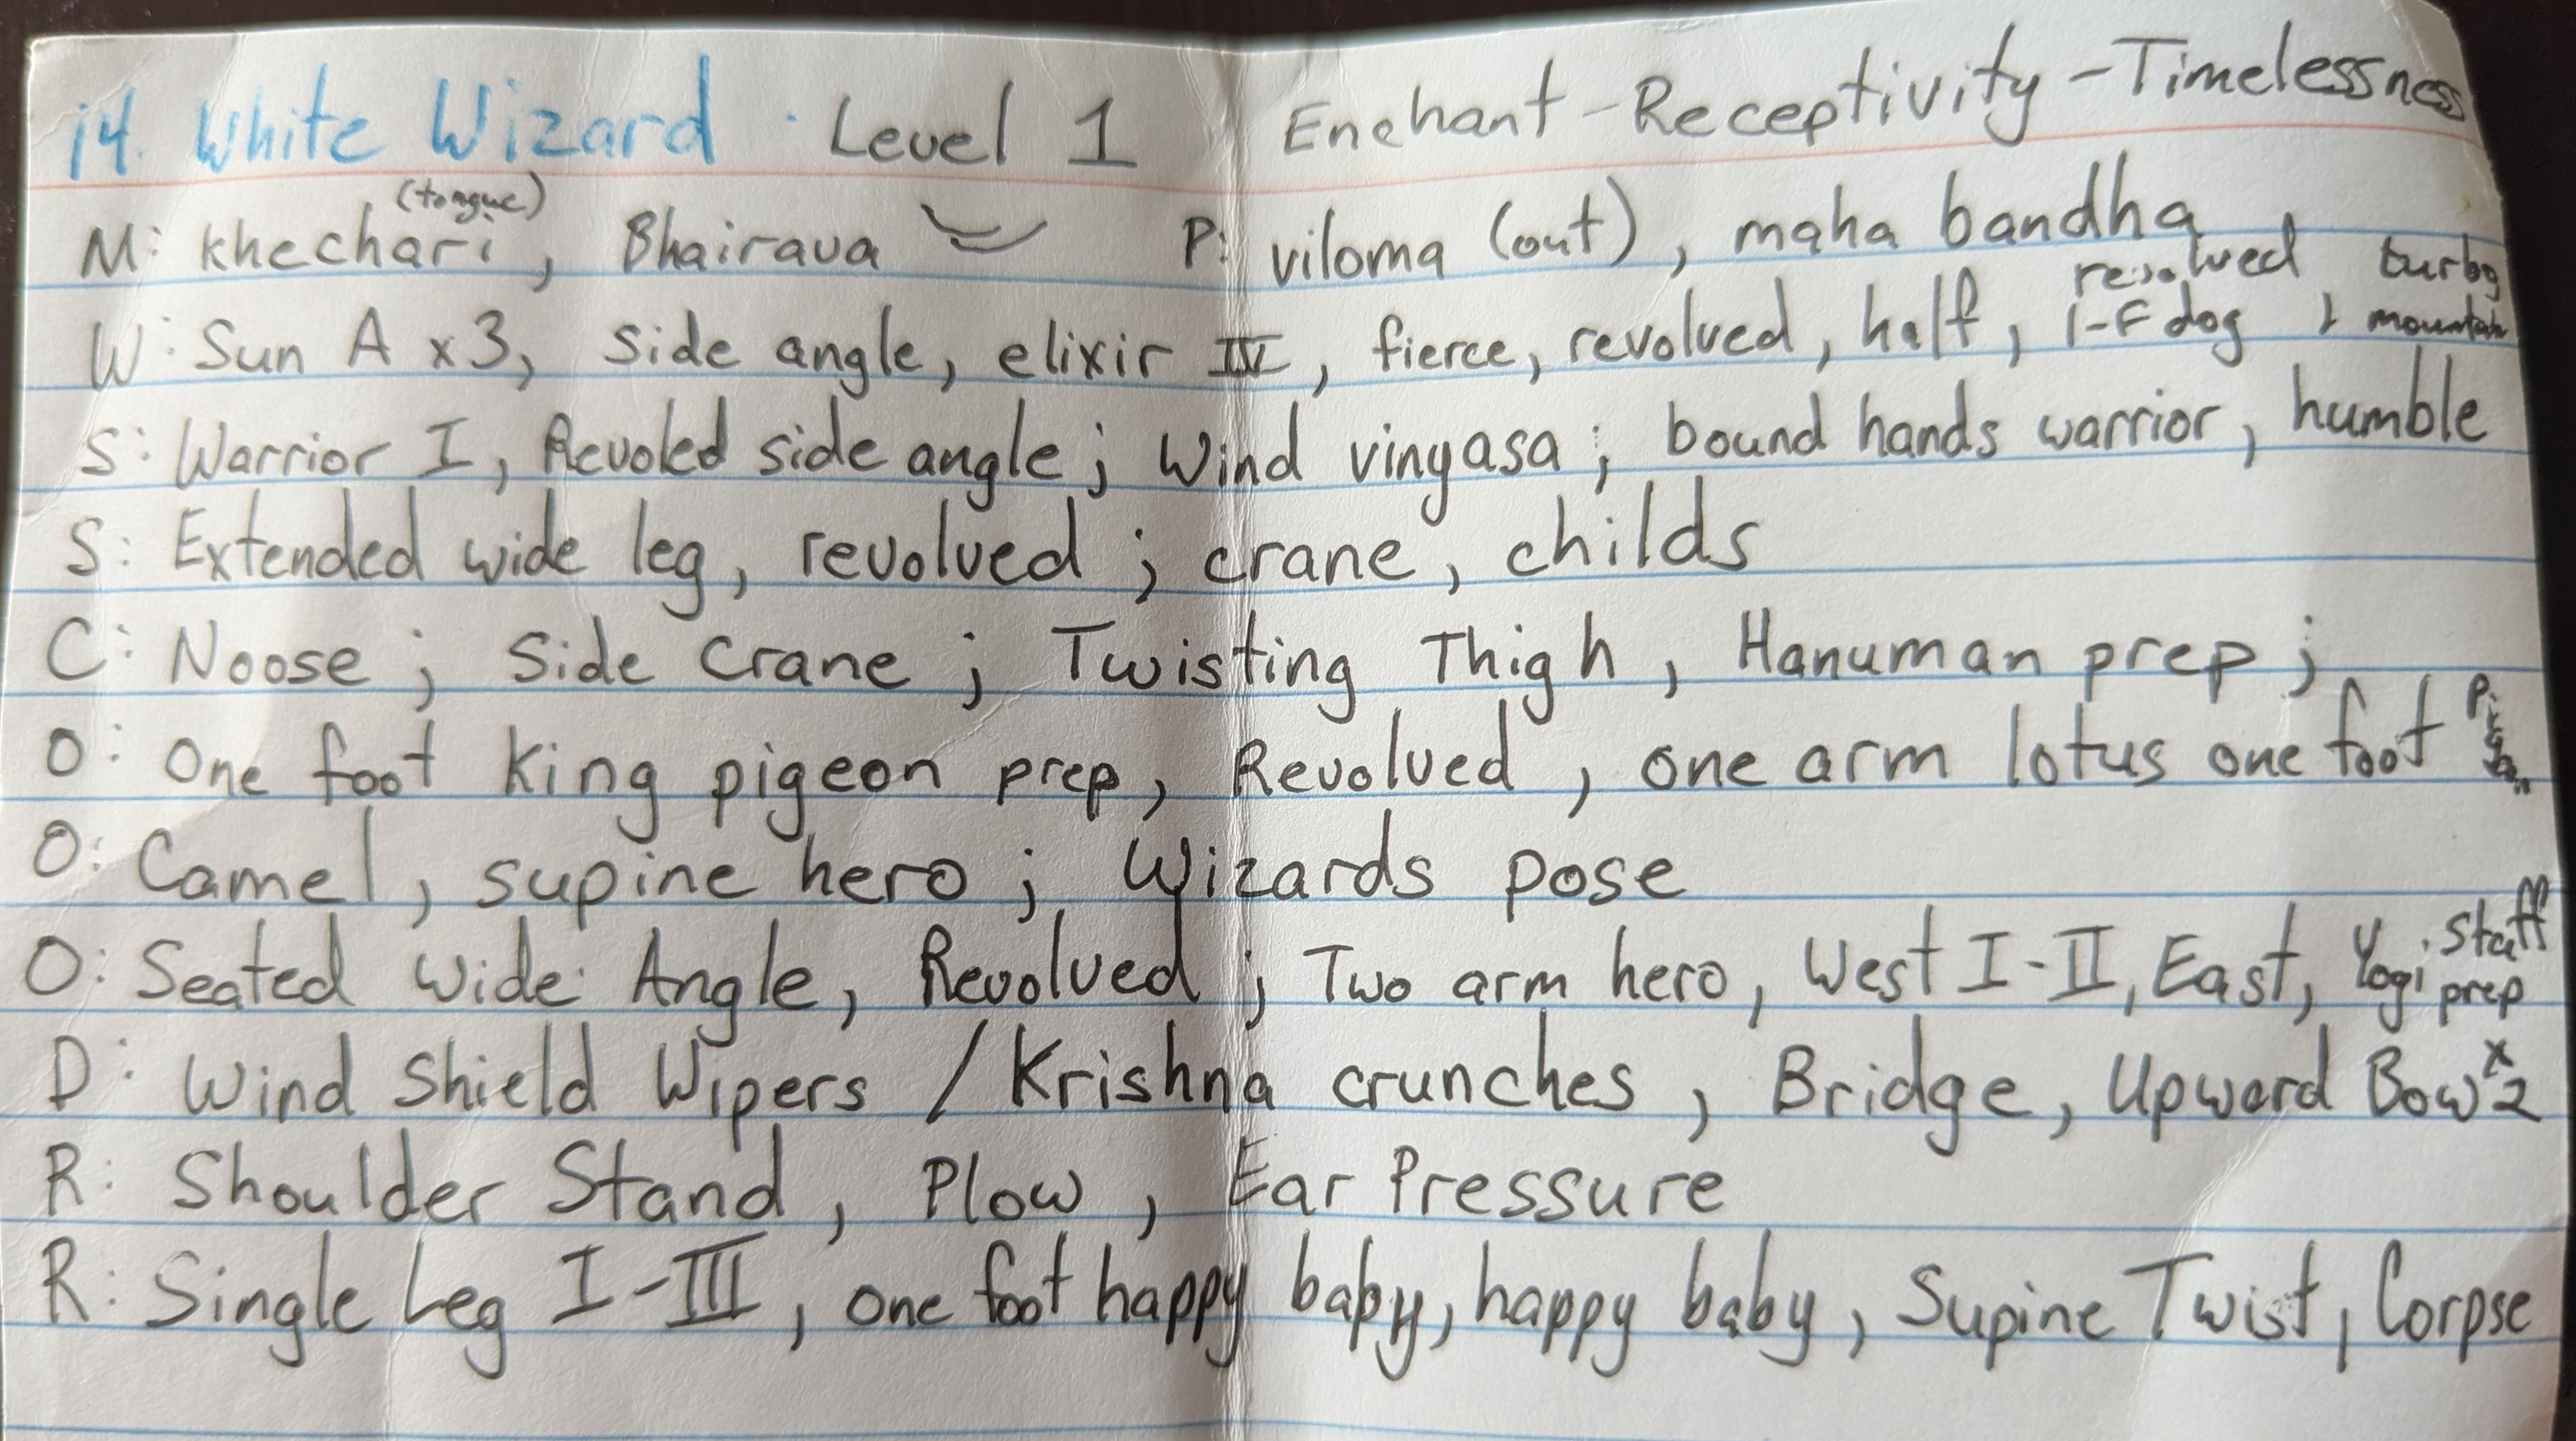 14. White Wizard · Level 1 Enchant - Receptivity - Timelessness
(tongue)
M: khechari, Bhairava P: viloma (out), maha bandha
resolved turbo
W: Sun A x3, side angle, elixir IV, fierce, revolved, half, 1-F dog, mountain
S: Warrior I, Revoled side angle; Wind vinyasa; bound hands warrior, humble
S: Extended wide leg, revolved; crane, childs
C: Noose; Side Crane; Twisting Thigh, Hanuman prep;
O: One foot King pigeon prep, Revolved, one arm lotus one foot Pigeon
O: Camel, supine hero; Wizards pose
O: Seated Wide Angle, Revolved; Two arm hero, West I-II, East, Yogi staff prep
D: Wind Shield Wipers / Krishna crunches, Bridge, Upward Bow x2
R: Shoulder Stand, Plow, Ear Pressure
R: Single Leg I-III, one foot happy baby, happy baby, Supine Twist, Corpse